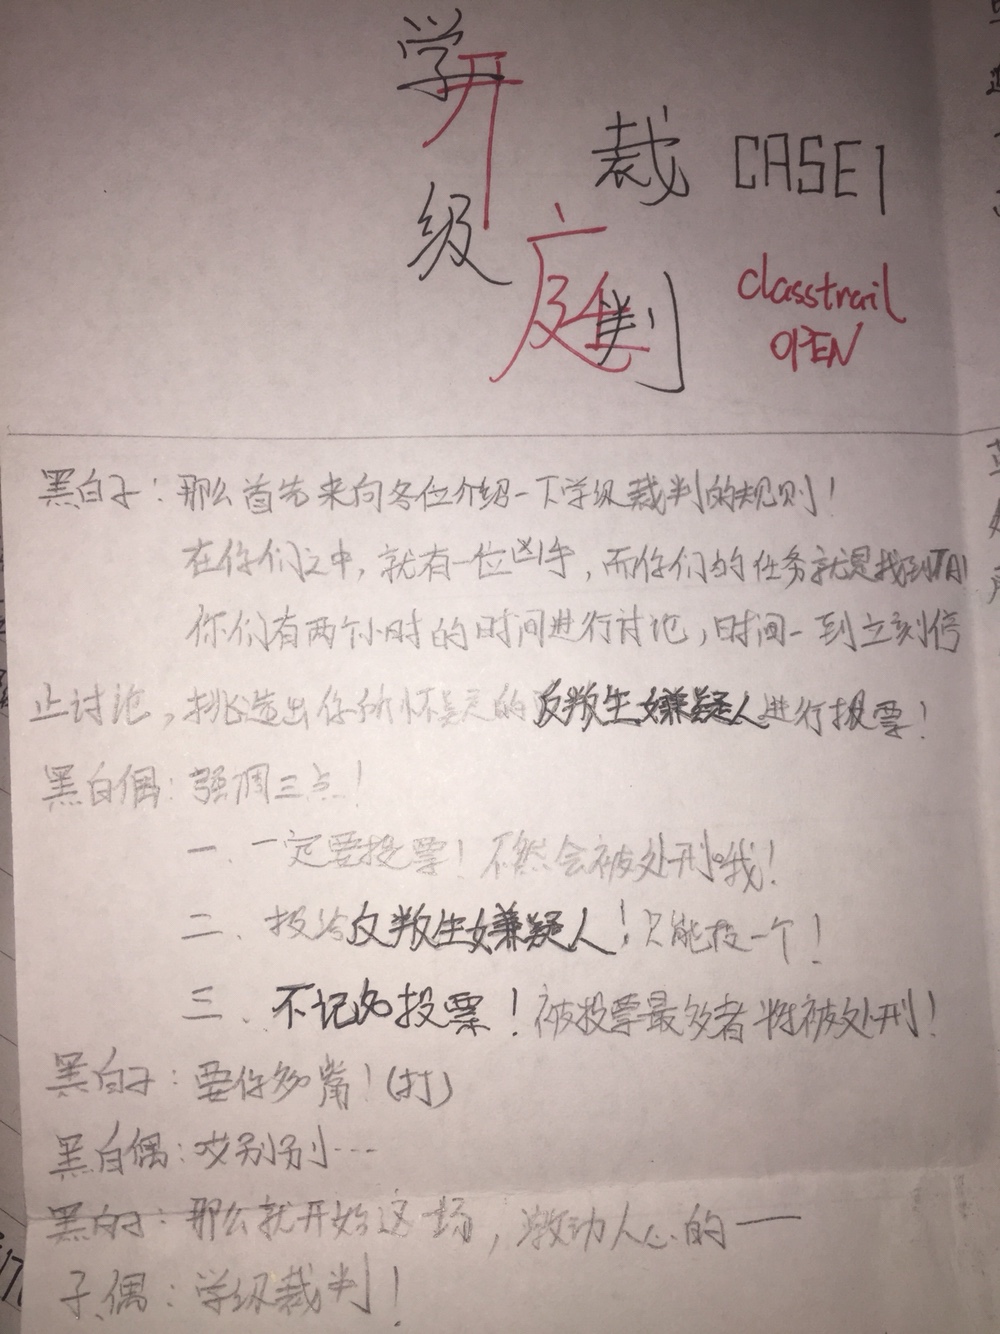 学级裁判 CASE1
开庭
classtrail
OPEN
黑白子：那么首先来向各位介绍一下学级裁判的规则！
在你们之中，就有一位凶手，而你们的任务就是找到TA！
你们有两个小时的时间进行讨论，时间一到立刻停
止讨论，挑选出你所怀疑的反叛生嫌疑人进行投票！
黑白偶：强调三点！
一、一定要投票！不然会被处刑哦！
二、投给反叛生嫌疑人！只能投一个！
三、不记名投票！被投票最多者将被处刑！
黑白子：要你多嘴！(打)
黑白偶：哎别别…
黑白子：那么就开始这场，激动人心的——
子、偶：学级裁判！